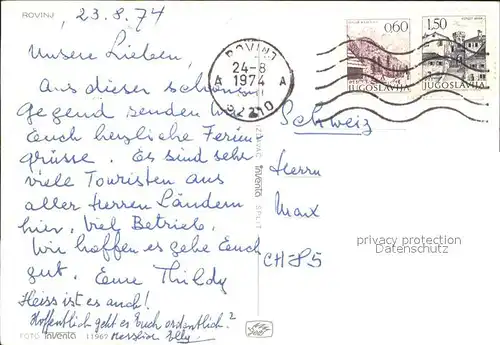 ROVINJ
, 23.8.74
Unsere Lieben,
Aus dieser schönen
Gegend senden wir
Euch herzliche Ferien
grüsse. Es sind sehr
viele Touristen aus
aller Herren Ländern
hier, viel Betrieb.
Wir hoffen es gehe Euch
gut. Eure Thildy
Heiss ist es auch!
Hoffentlich geht es Euch ordentlich?
Elly.
ROVINJ
24-8
1974
A A
52210
0,60
JUGOSLAVIJA
1,50
JUGOSLAVIJA
Schweiz
Herrn
Marx
CH-85
privacy protection
Datenschutz
IZDAVAČ inventa SPLIT
FOTO inventa 11967